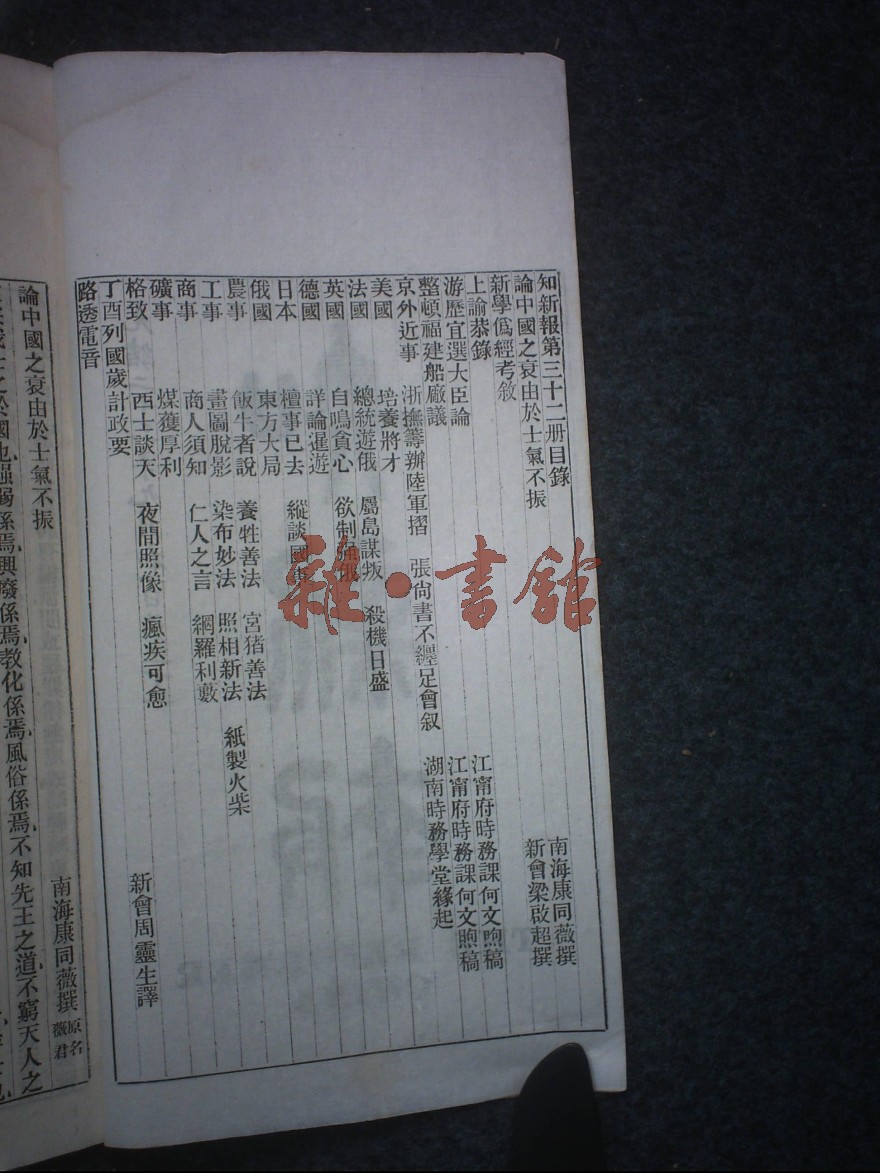 知新報第三十二册目錄
論中國之衰由於士氣不振 南海康同薇撰
新學僞經考敘 新會梁啟超撰
上諭恭錄
游歷宜選大臣論 江甯府時務課何文煦稿
整頓福建船廠議 江甯府時務課何文煦稿
京外近事 浙撫籌辦陸軍摺 張尚書不纏足會叙 湖南時務學堂緣起
美國 培養將才
法國 總統遊俄 屬島謀叛 殺機日盛
英國 自鳴貪心 欲制強俄
德國 詳論暹遊
日本 檀事已去 縱談國事
俄國 東方大局
農事 飯牛者說 養牲善法 宮猪善法
工事 畫圖脫影 染布妙法 照相新法 紙製火柴
商事 商人須知 仁人之言 網羅利藪
礦事 煤獲厚利
格致 西士談天 夜間照像 瘋疾可愈
丁酉列國歲計政要 新會周靈生譯
路透電音
論中國之衰由於士氣不振 南海康同薇撰 原名薇君
之於國也強弱係焉興廢係焉教化係焉風俗係焉不知先王之道不窮天人之
雜·書館